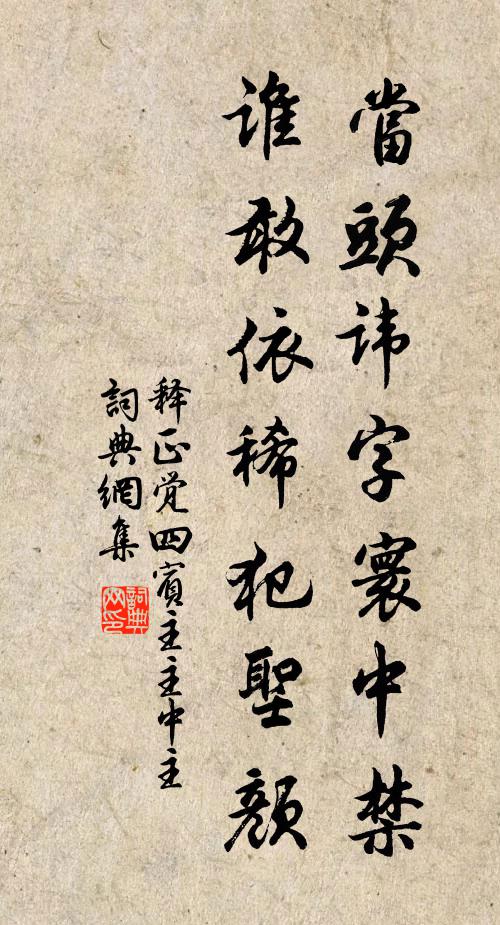 當頭諱字寰中禁
誰敢依稀犯聖顏
释正觉四賓主主中主
詞典網集
詞典网印